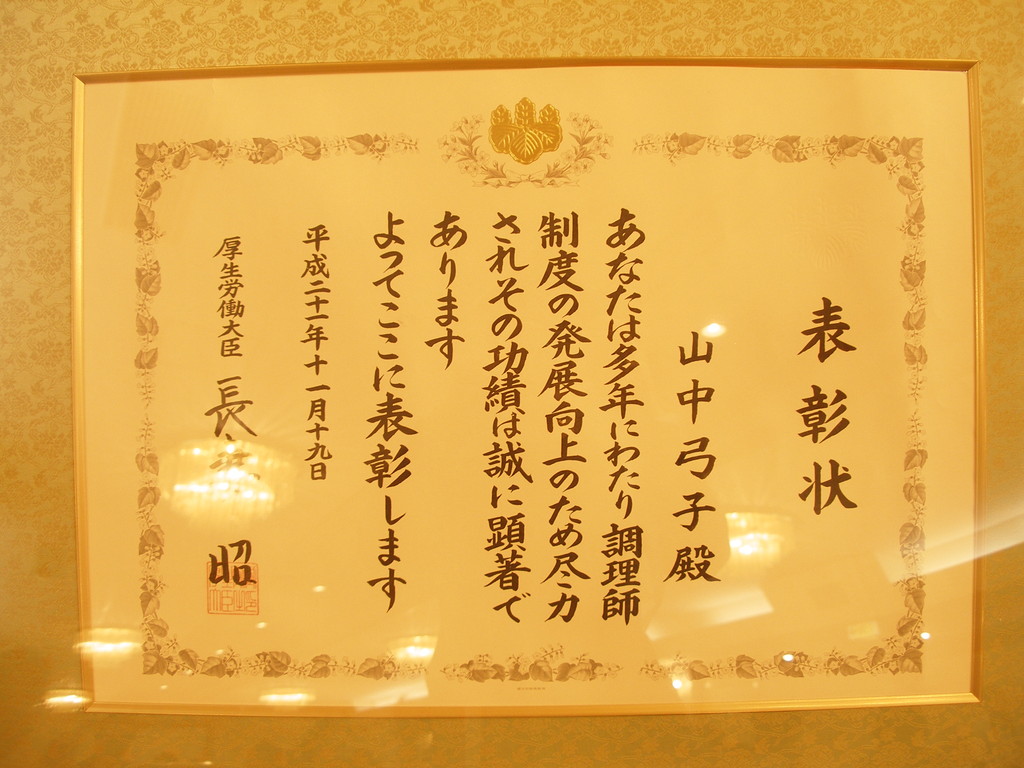 表彰状
山中弓子殿
あなたは多年にわたり調理師
制度の発展向上のため尽力
されその功績は誠に顕著で
あります
よってここに表彰します
平成二十一年十一月十九日
厚生労働大臣 長妻 昭